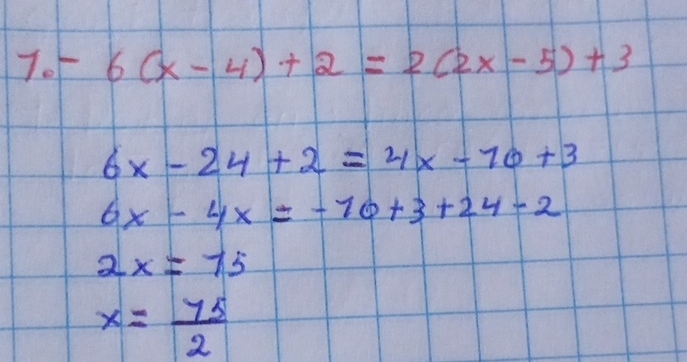 1.- 6(x - 4) + 2 = 2(2x - 5) + 3
6x - 24 + 2 = 4x - 10 + 3
6x - 4x = -10 + 3 + 24 - 2
2x = 15
x = 15/2